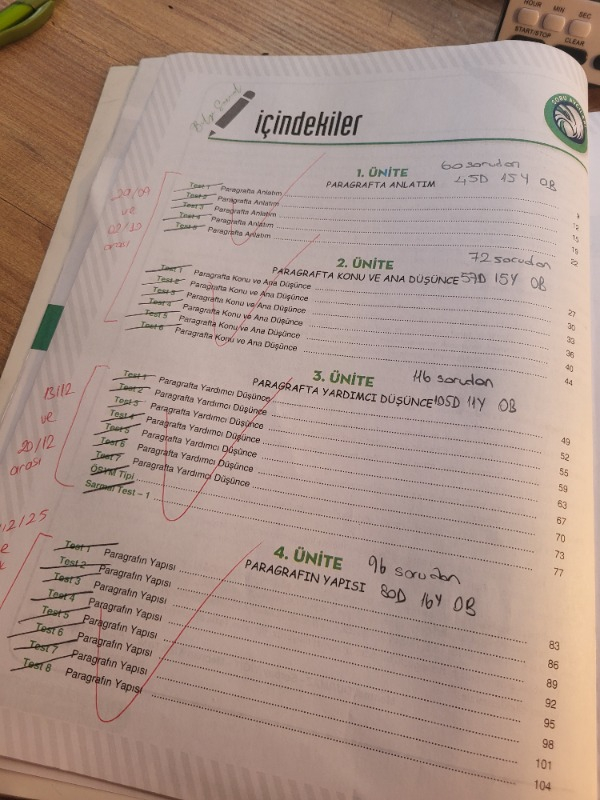 HOUR MIN SEC
START/STOP CLEAR
içindekiler
1. ÜNİTE 60 sorudan
PARAGRAFTA ANLATIM 45D 15Y 0B
Test 1 Paragrafta Anlatım 9
Test 2 Paragrafta Anlatım 12
Test 3 Paragrafta Anlatım 15
Test 4 Paragrafta Anlatım 19
Test 5 Paragrafta Anlatım 22
ve
arası
2. ÜNİTE 72 sorudan
PARAGRAFTA KONU VE ANA DÜŞÜNCE 57D 15Y 0B
Test 1 Paragrafta Konu ve Ana Düşünce 27
Test 2 Paragrafta Konu ve Ana Düşünce 30
Test 3 Paragrafta Konu ve Ana Düşünce 33
Test 4 Paragrafta Konu ve Ana Düşünce 36
Test 5 Paragrafta Konu ve Ana Düşünce 40
Test 6 Paragrafta Konu ve Ana Düşünce 44
3. ÜNİTE 116 sorudan
PARAGRAFTA YARDIMCI DÜŞÜNCE 105D 11Y 0B
13/12
ve
20/12
arası
Test 1 Paragrafta Yardımcı Düşünce 49
Test 2 Paragrafta Yardımcı Düşünce 52
Test 3 Paragrafta Yardımcı Düşünce 55
Test 4 Paragrafta Yardımcı Düşünce 59
Test 5 Paragrafta Yardımcı Düşünce 63
Test 6 Paragrafta Yardımcı Düşünce 67
Test 7 Paragrafta Yardımcı Düşünce 70
ÖSYM Tipi 73
Sarmal Test – 1 77
4. ÜNİTE 96 sorudan
PARAGRAFIN YAPISI 80D 16Y 0B
Test 1 Paragrafın Yapısı 83
Test 2 Paragrafın Yapısı 86
Test 3 Paragrafın Yapısı 89
Test 4 Paragrafın Yapısı 92
Test 5 Paragrafın Yapısı 95
Test 6 Paragrafın Yapısı 98
Test 7 Paragrafın Yapısı 101
Test 8 Paragrafın Yapısı 104